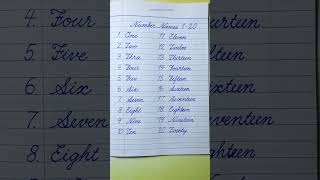 Number Names 1-20
1. One 11. Eleven
2. Two 12. Twelve
3. Three 13. Thirteen
4. Four 14. Fourteen
5. Five 15. Fifteen
6. Six 16. Sixteen
7. Seven 17. Seventeen
8. Eight 18. Eighteen
9. Nine 19. Nineteen
10. Ten 20. Twenty
4. Four
5. Five
6. Six
7. Seven
8. Eight